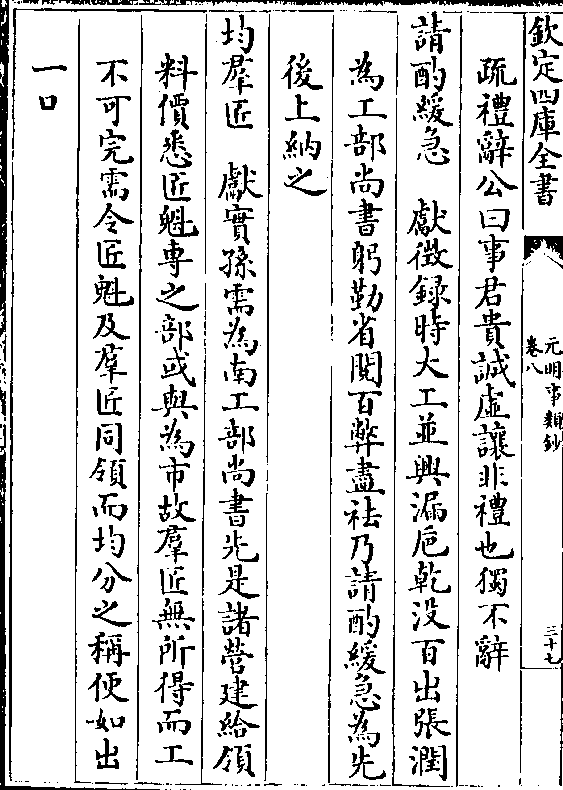 欽定四庫全書
元明事類鈔
卷八
三十七
疏禮辭公曰事君貴誠虛讓非禮也獨不辭
請酌緩急　獻徴録時大工並興漏巵乾没百出張潤
為工部尚書躬勤省閲百弊盡袪乃請酌緩急為先
後上納之
均羣匠　獻實孫需為南工部尚書先是諸營建給領
料價悉匠魁専之部或與為市故羣匠無所得而工
不可完需令匠魁及羣匠同領而均分之稱便如出
一口